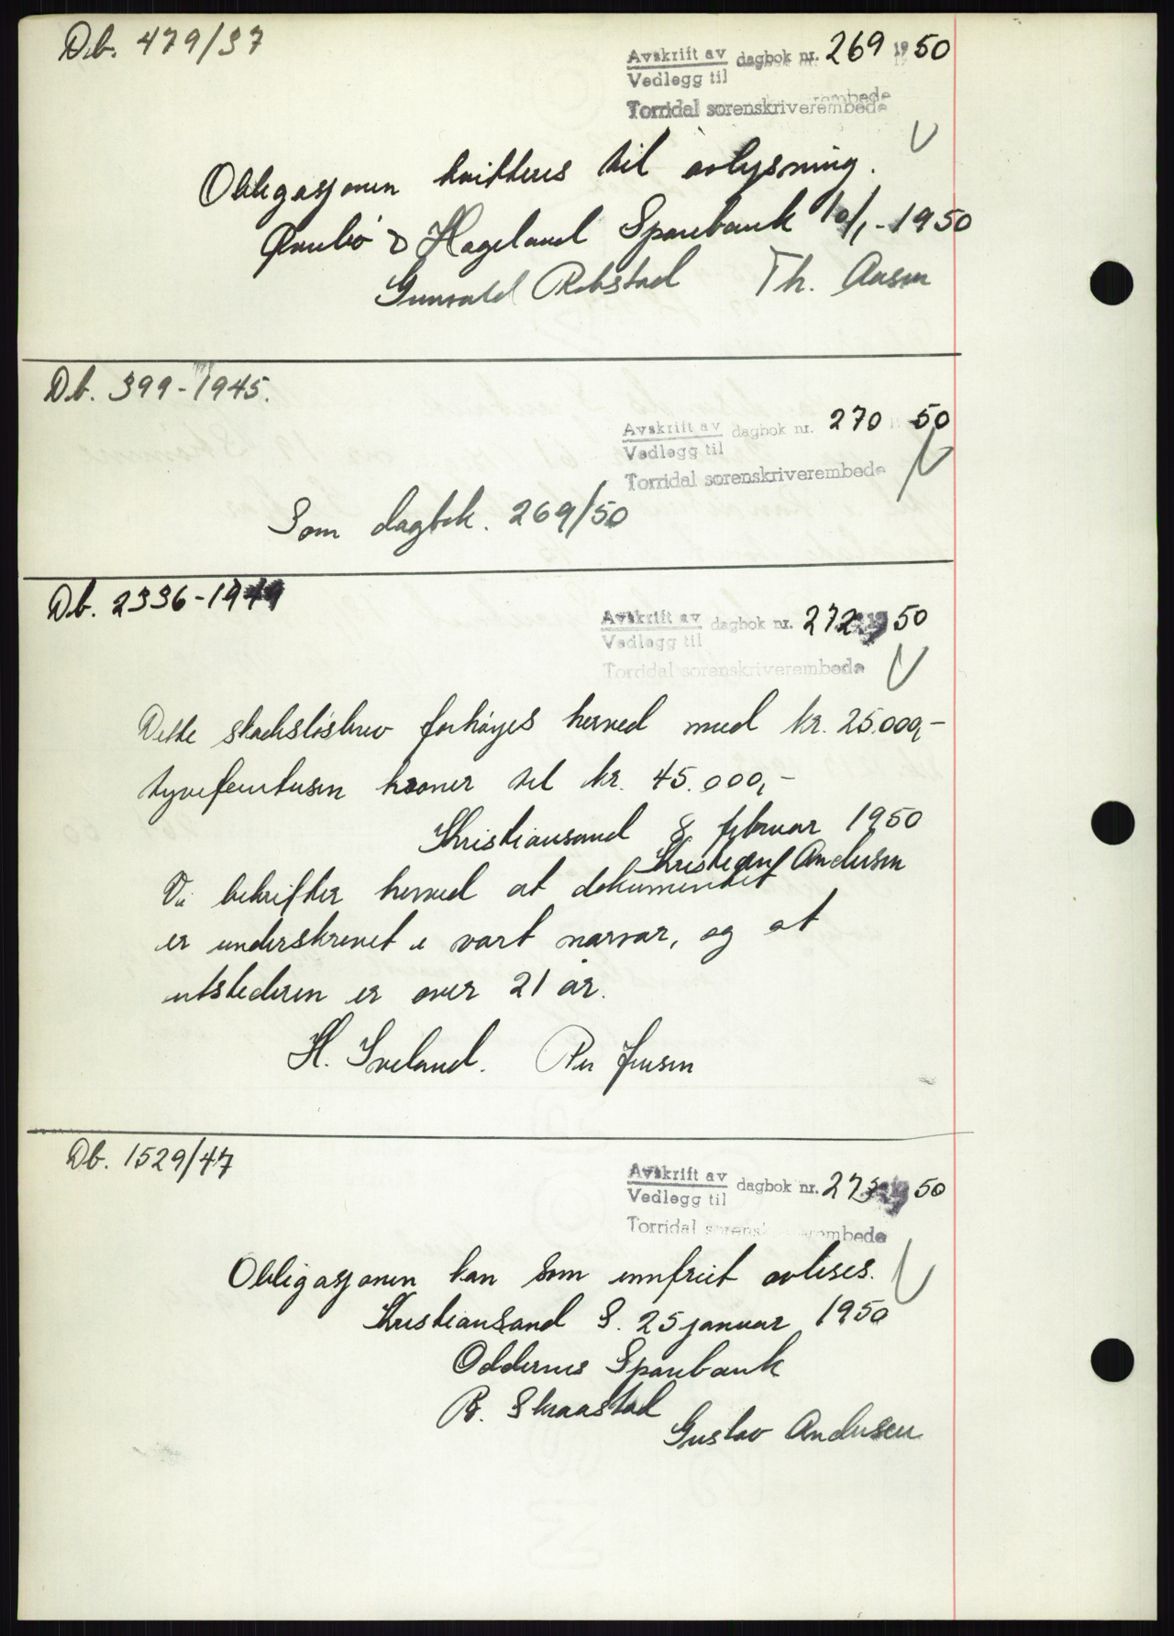 Db. 479/37
Avskrift av dagbok nr. 269 1950
Vedlegg til
Torridal sorenskriverembede
Obligasjonen kvitteres til avlysning.
Øvrebø & Hægeland Sparebank 10/1-1950
Gunvald Robstad Th. Aasen
Db. 399-1945.
Avskrift av dagbok nr. 270 50
Vedlegg til
Torridal sorenskriverembede
Som dagbok. 269/50
Db. 2336-1949
Avskrift av dagbok nr. 272 1950
Vedlegg til
Torridal sorenskriverembede
Dette skadesløsbrev forhøyes herved med kr. 25.000,-
tyvefemtusen kroner til kr. 45.000,-
Kristiansand 8 februar 1950
Kristian Andersen
Vi bekrifter herved at dokumentet
er underskrevet i vart nærvær, og at
utstederen er over 21 år.
H. Iveland. Per Jensen
Db. 1529/47
Avskrift av dagbok nr. 273 1950
Vedlegg til
Torridal sorenskriverembede
Obligasjonen kan som innfriet avleses.
Kristiansand S. 25 januar 1950
Oddernes Sparebank
B. Skraastad
Gustav Andersen